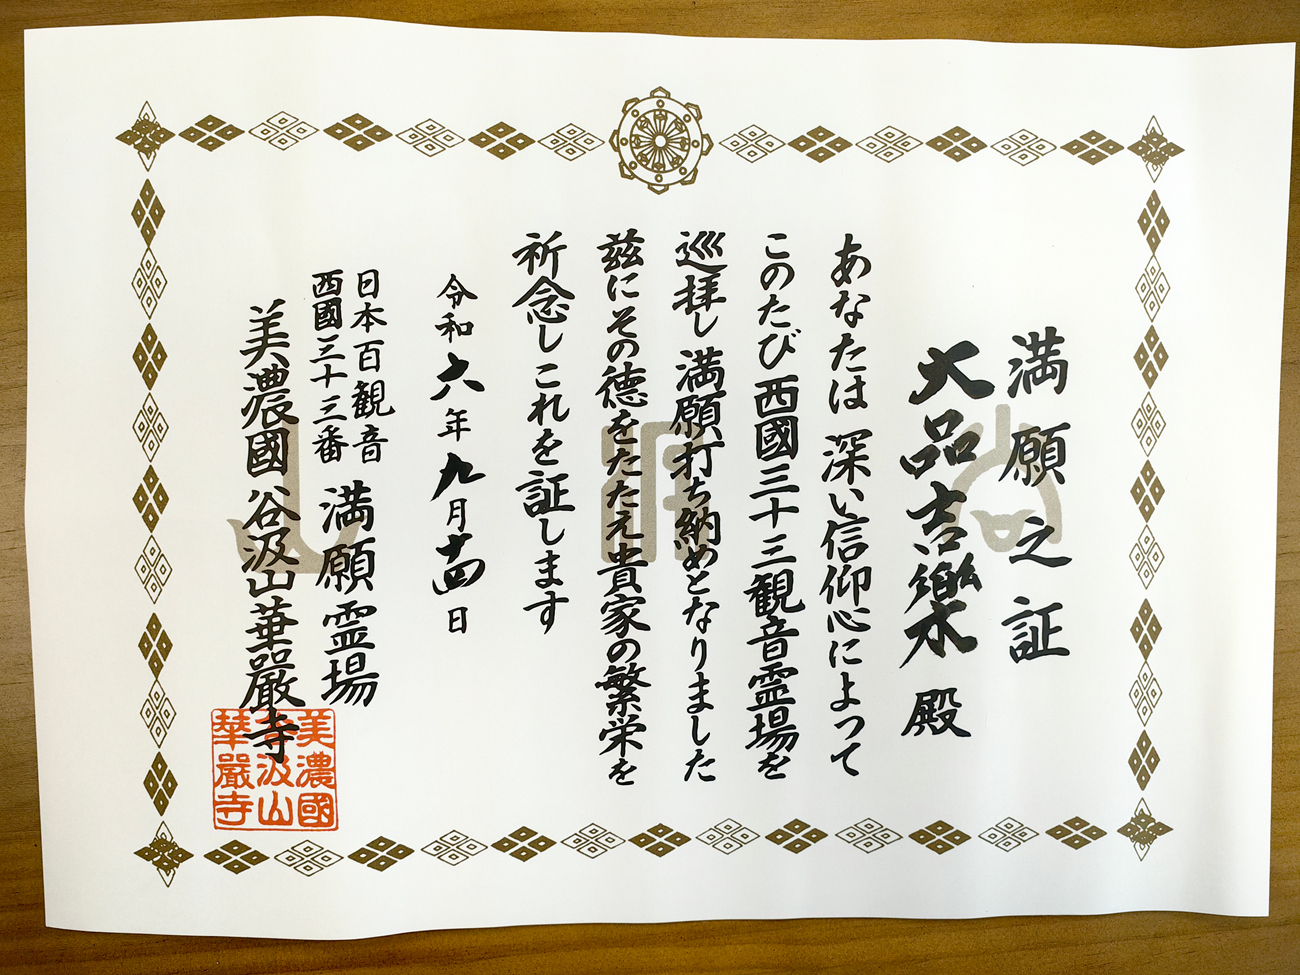 満願之証
大品吉樂 殿
あなたは 深い信仰心によって
このたび 西國三十三観音霊場を
巡拝し 満願打ち納めとなりました
茲にその徳をたたえ貴家の繁栄を
祈念し これを証します
令和六年九月十四日
日本百観音
西國三十三番
満願霊場
美濃國 谷汲山華嚴寺
美濃國
谷汲山
華嚴寺